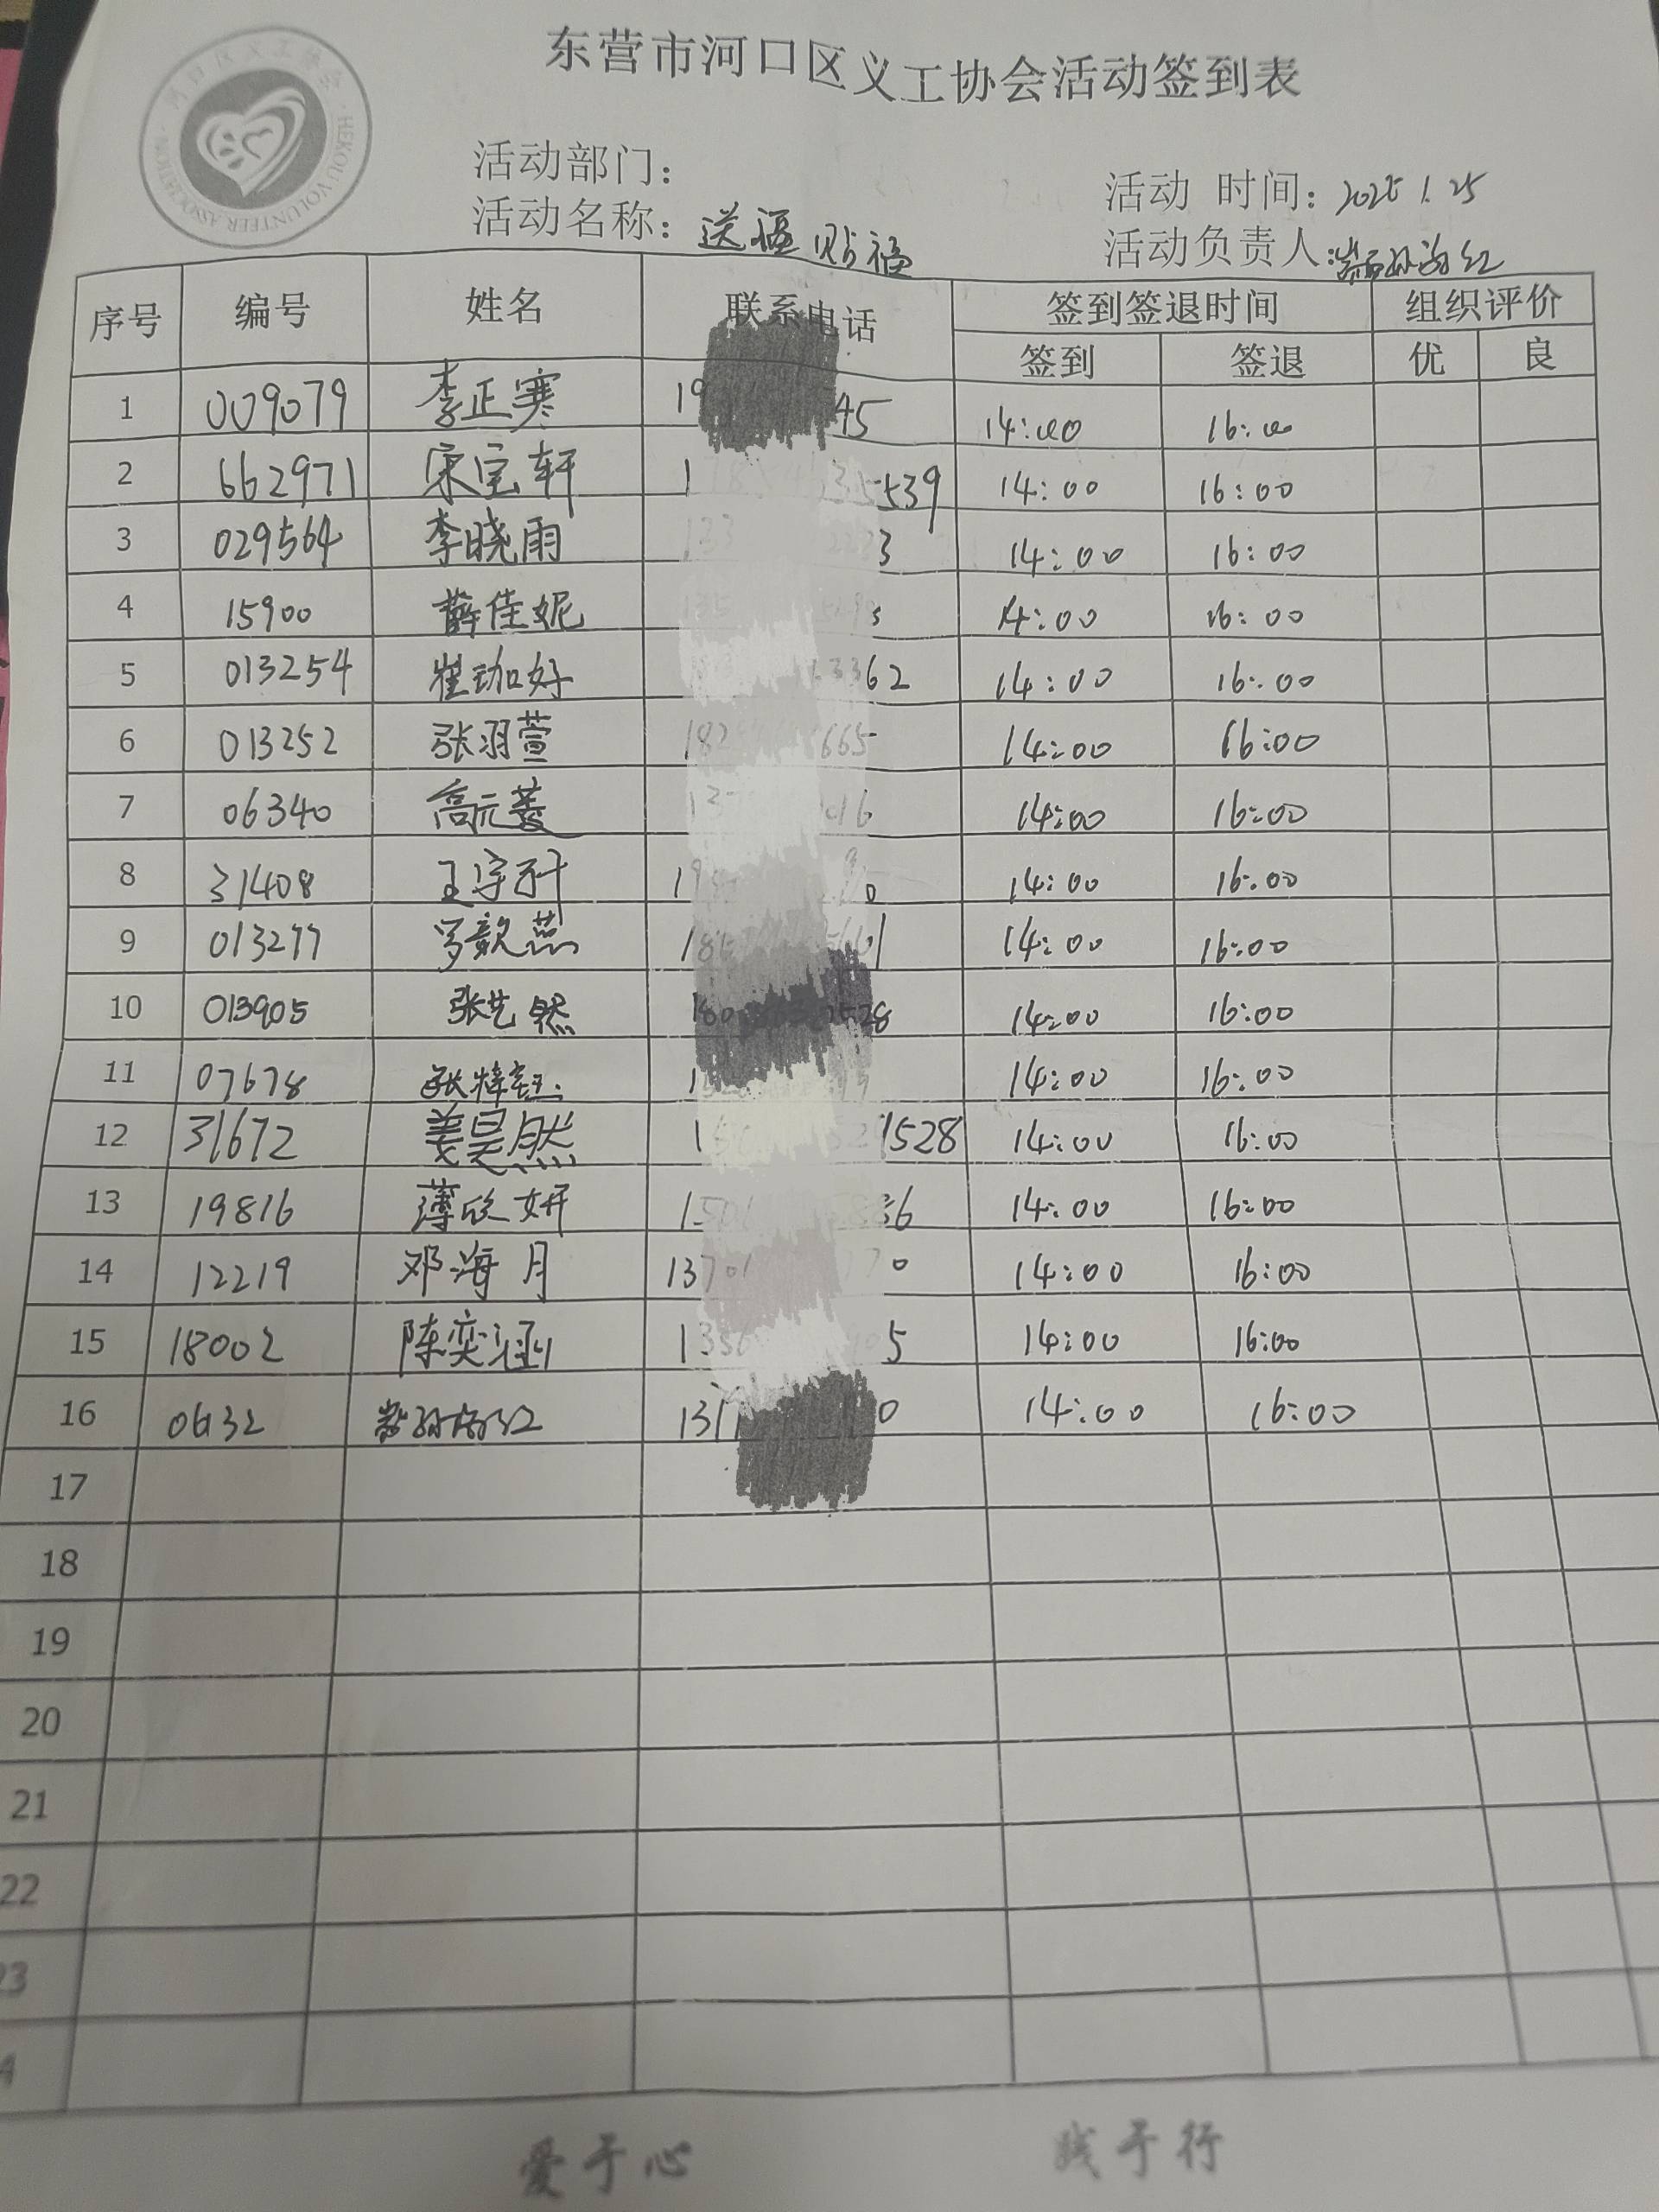 东营市河口区义工协会活动签到表
河口区义工协会 · HEKOU VOLUNTEER ASSOCIATION ·
活动部门：
活动 时间：2025 1.25
活动名称：送福 贴福
活动负责人：
序号 编号 姓名 联系电话 签到签退时间 组织评价
签到 签退 优 良
1 009079 李正寒 19 45 14:00 16:00
2 662971 宋宝轩 1 539 14:00 16:00
3 029564 李晓雨 3 14:00 16:00
4 15900 薛佳妮 14:00 16:00
5 013254 崔珈好 62 14:00 16:00
6 013252 张羽萱 14:00 16:00
7 06340 高元菱 14:00 16:00
8 31408 王宇轩 1 0 14:00 16:00
9 013277 罗毅蕊 1 14:00 16:00
10 013905 张艺然 14:00 16:00
11 07678 张梓钰 14:00 16:00
12 31672 姜昊然 1 1528 14:00 16:00
13 19816 薄欣妍 1 6 14:00 16:00
14 12219 邓海月 13 0 14:00 16:00
15 18002 陈奕涵 1 5 14:00 16:00
16 0632 131 0 14:00 16:00
17
18
19
20
21
22
23
4
爱于心 践于行